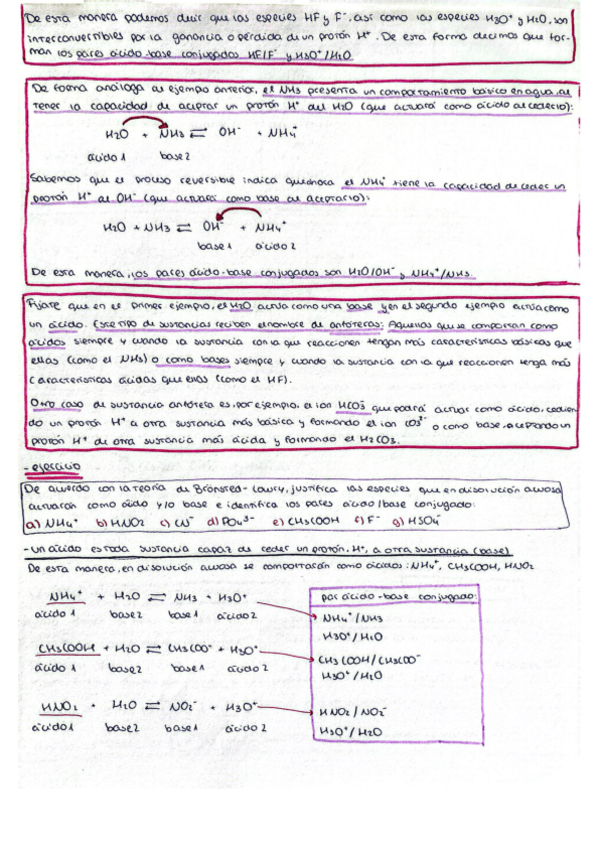 De esta manera podemos decir que las especies HF y F⁻, así como las especies H3O⁺ y H2O, son
interconvertibles por la ganancia o pérdida de un protón H⁺. De esta forma decimos que for-
man los pares ácido-base conjugados HF/F⁻ y H3O⁺/H2O.
De forma análoga al ejemplo anterior, el NH3 presenta un comportamiento básico en agua, al
tener la capacidad de aceptar un protón H⁺ del H2O (que actuará como ácido al cederlo):
H2O + NH3 ⇌ OH⁻ + NH4⁺
ácido 1 base 2
Sabemos que el proceso reversible indica que ahora el NH4⁺ tiene la capacidad de ceder un
protón H⁺ al OH⁻ (que actuará como base al aceptarlo):
H2O + NH3 ⇌ OH⁻ + NH4⁺
base 1 ácido 2
De esta manera, los pares ácido-base conjugados son H2O/OH⁻ y NH4⁺/NH3.
Fíjate que en el primer ejemplo, el H2O actúa como una base y en el segundo ejemplo actúa como
un ácido. Este tipo de sustancias reciben el nombre de anfóteras: Aquellas que se comportan como
ácidos siempre y cuando la sustancia con la que reaccionen tengan más características básicas que
ellas (como el NH3) o como bases siempre y cuando la sustancia con la que reaccionen tenga más
características ácidas que ellas (como el HF).
Otro caso de sustancia anfótera es, por ejemplo, el ion HCO3⁻ que podrá actuar como ácido, cedien
do un protón H⁺ a otra sustancia más básica y formando el ion CO3²⁻ o como base, aceptando un
protón H⁺ de otra sustancia más ácida y formando el H2CO3.
- ejercicio
De acuerdo con la teoría de Brönsted-Lowry, justifica las especies que en disolución acuosa
actuarán como ácido y/o base e identifica los pares ácido/base conjugado:
a) NH4⁺ b) HNO2 c) CN⁻ d) PO4³⁻ e) CH3COOH f) F⁻ g) HSO4⁻
- Un ácido es toda sustancia capaz de ceder un protón, H⁺, a otra sustancia (base)
De esta manera, en disolución acuosa se comportarán como ácidos: NH4⁺, CH3COOH, HNO2
NH4⁺ + H2O ⇌ NH3 + H3O⁺
ácido 1 base 2 base 1 ácido 2
CH3COOH + H2O ⇌ CH3COO⁻ + H3O⁺
ácido 1 base 2 base 1 ácido 2
HNO2 + H2O ⇌ NO2⁻ + H3O⁺
ácido 1 base 2 base 1 ácido 2
par ácido-base conjugado:
NH4⁺/NH3
H3O⁺/H2O
CH3COOH/CH3COO⁻
H3O⁺/H2O
HNO2/NO2⁻
H3O⁺/H2O